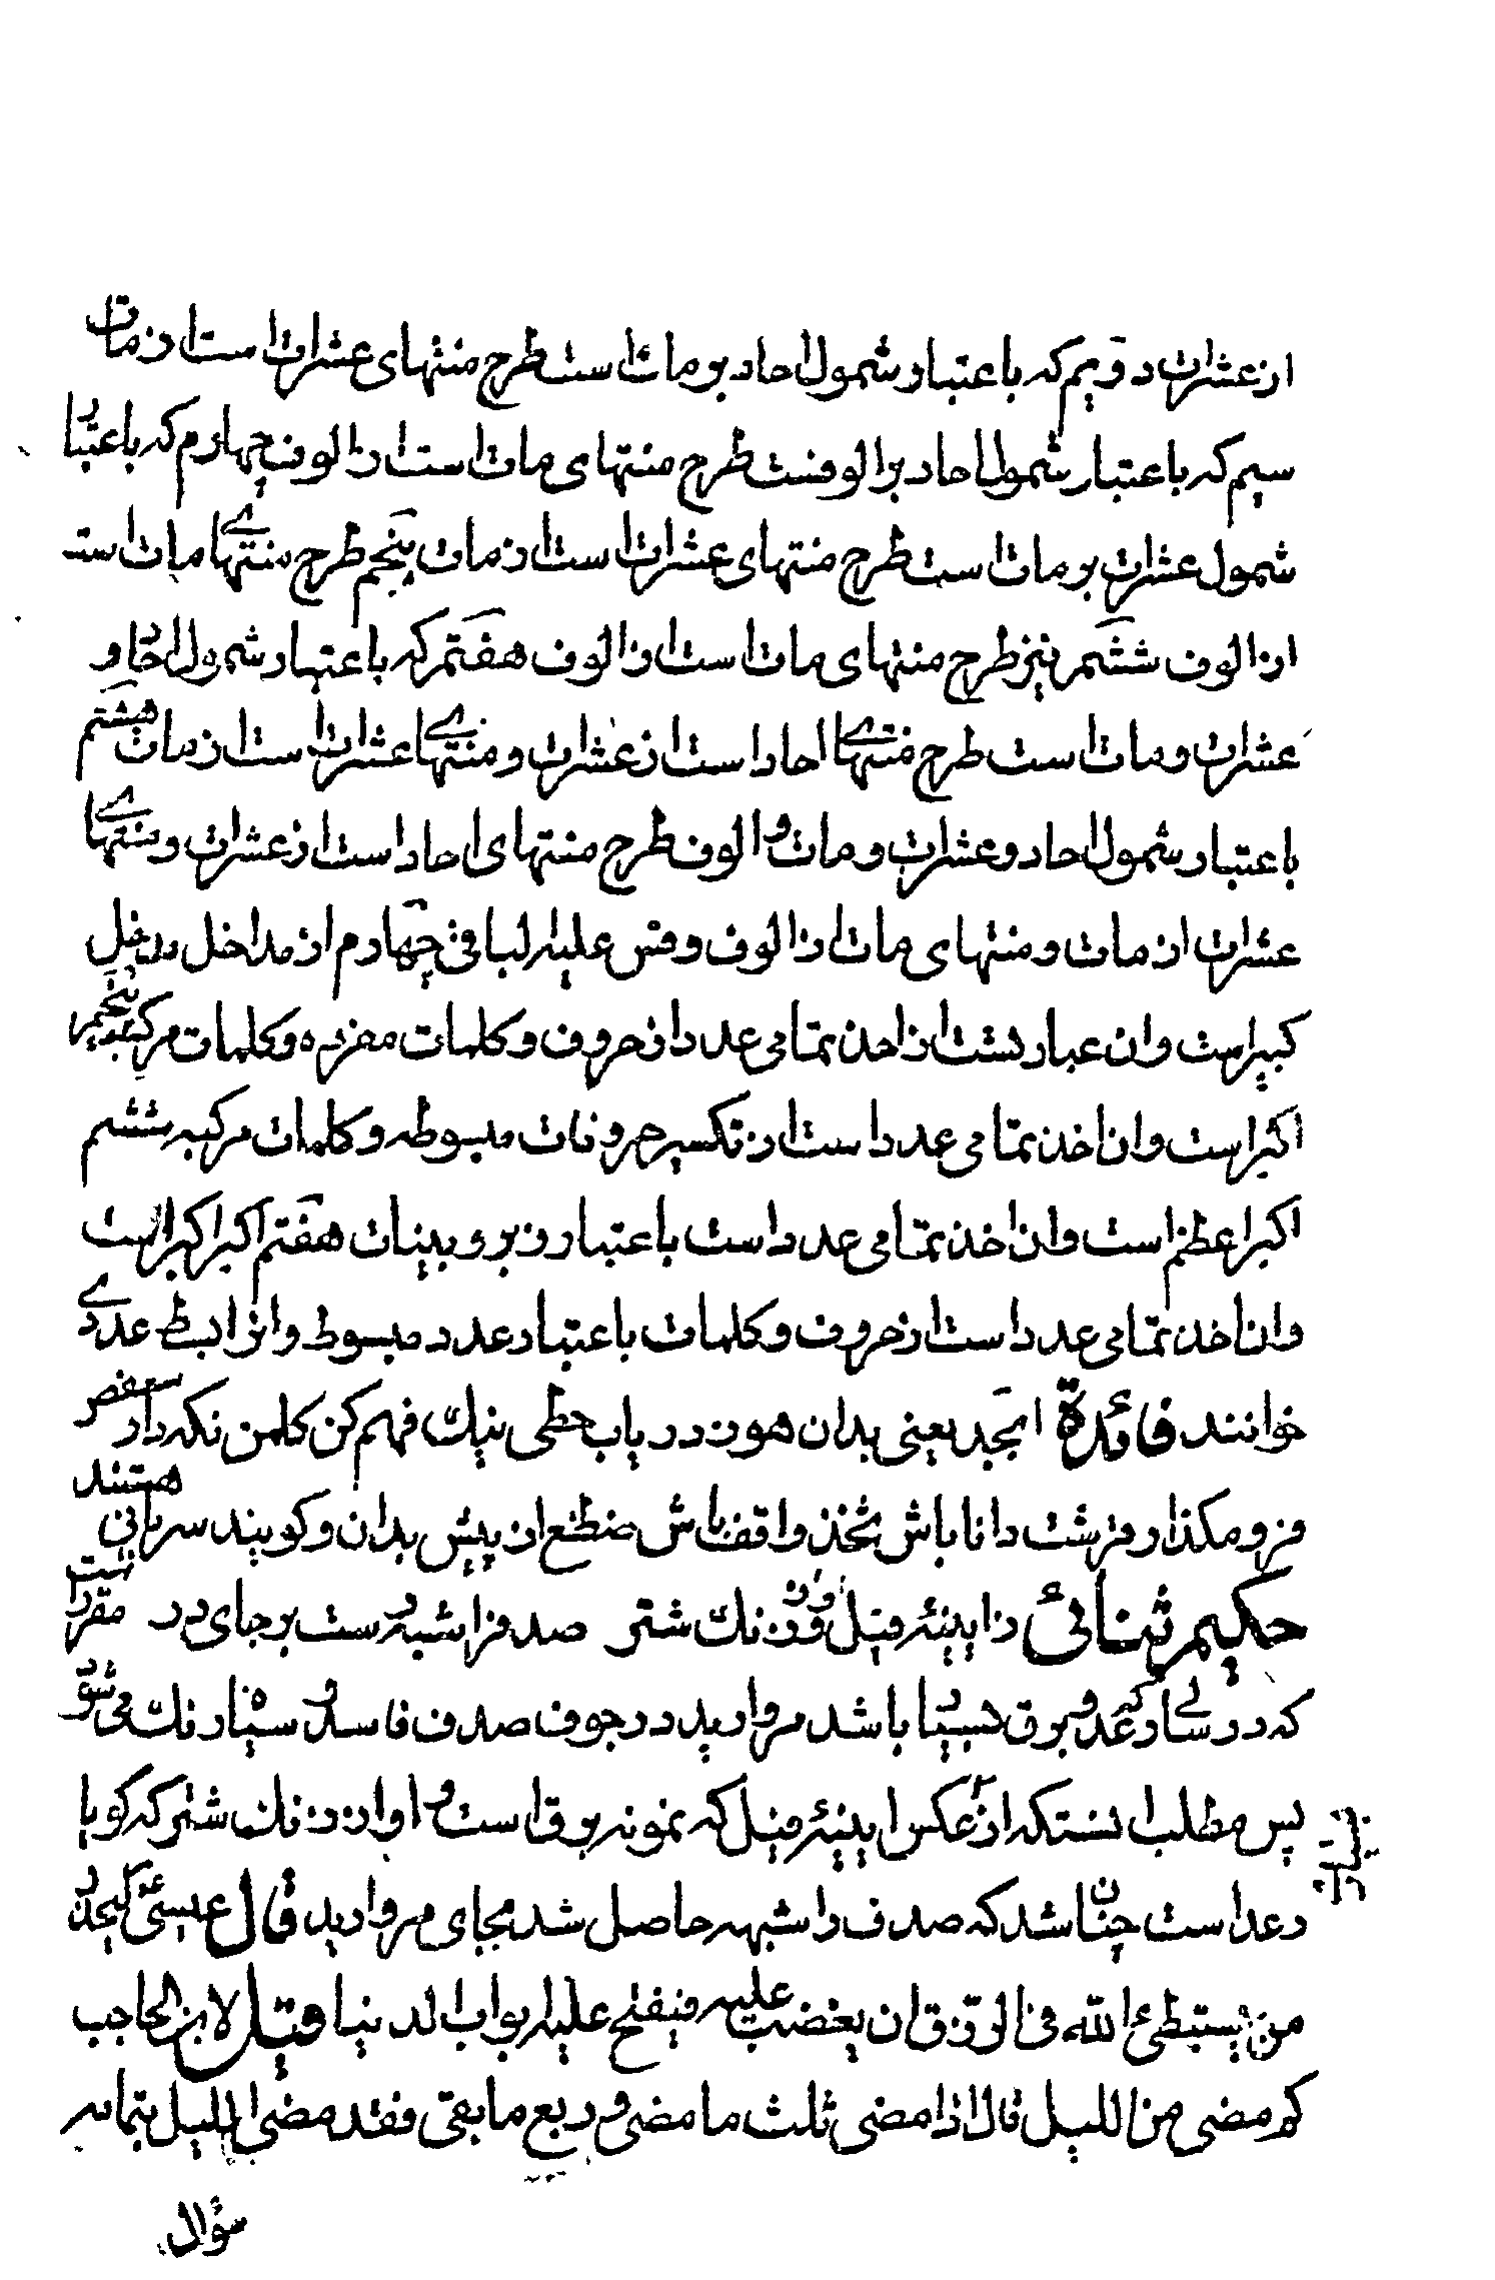 از عشرات دویم که باعتبار شمول احاد بر مات است طرح منتهای عشرات است از مات
سیم که باعتبار شمول احاد بر الوفست طرح منتهای مات است از الوف چهارم که باعتبار
شمول عشرات بر مات است طرح منتهای عشرات است از مات پنجم طرح منتهای مات است
از الوف ششم نیز طرح منتهای مات است از الوف هفتم که باعتبار شمول احاد و
عشرات و مات است طرح منتهای احاد است از عشرات و منتهای عشرات است از مات هشتم
باعتبار شمول احاد و عشرات و مات و الوف طرح منتهای احاد است از عشرات و منتهای
عشرات از مات و منتهای مات از الوف وقس علیه البافی چهارم از مداخل مدخل
کبیر است وان عبارتست از اخذ تمامی عدد از حروف و کلمات مفرده و کلمات مرکبه پنجم
اکبر است وان اخذ تمامی عدد است از تکسیر حروفات مبسوطه و کلمات مرکبه ششم
اکبر اعظم است وان اخذ تمامی عدد است باعتبار زبر و بینات هفتم اکبر اکبر است
وان اخذ تمامی عدد است از حروف و کلمات باعتبار عدد مبسوط وانرا بسط عددی
خوانند فائدة ابجد یعنی بدان هوز دریاب حطی نیك فهم کن کلمن نکه دار سعفص
فرو مکذار قرشت دانا باش ثخذ واقف باش ضظغ از پیش بدان وکویند سریانی هستند
حکیم ثنائی ز اینئه فیل وز زنك شتر صدف را شبه است بر جای در مقرر است
که در سالی که رعد و برق بسیار باشد مروارید در جوف صدف فاسد و سیاه رنك می شود
پس مطلب انستکه از عکس اینئه فیل که نمونه برق است و اواز زنك شتر که کویا
رعد است چنان شد که صدف را شبهه حاصل شد بجای مروارید قال عیسی ع لیحذر
من یستبطئ الله فی الرزق ان یغضب علیه فیفتح علیه ابواب الدنیا وقیل لابن الحاجب
کم مضی من اللیل قال اذا مضی ثلث ما مضی و ربع ما بقی فقد مضی اللیل بتمامه
سؤال